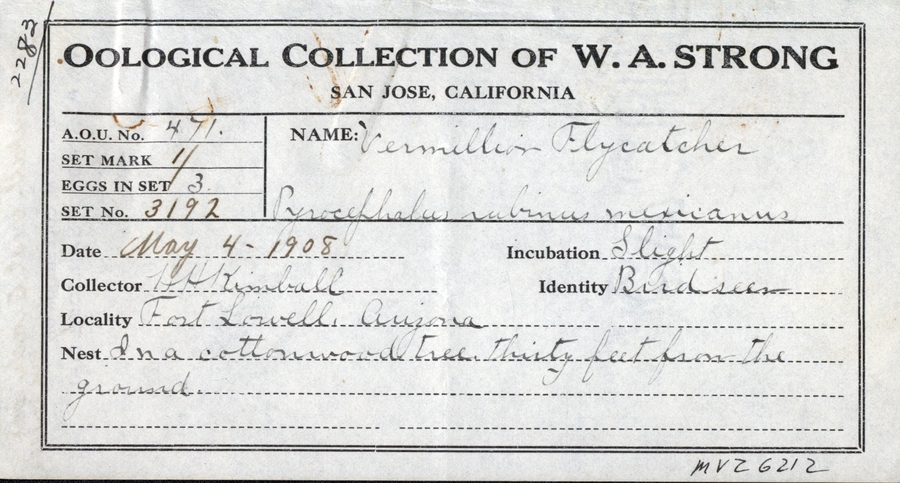 2283
OOLOGICAL COLLECTION OF W. A. STRONG
SAN JOSE, CALIFORNIA
A.O.U. No. 471.
SET MARK 1/
EGGS IN SET 3
SET No. 3192
NAME: Vermillion Flycatcher
Pyrocephalus rubinus mexicanus
Date May 4 - 1908
Incubation Slight
Collector HH Kimball
Identity Bird seen
Locality Fort Lowell, Arizona
Nest In a cottonwood tree thirty feet from the
ground.
MVZ 6212